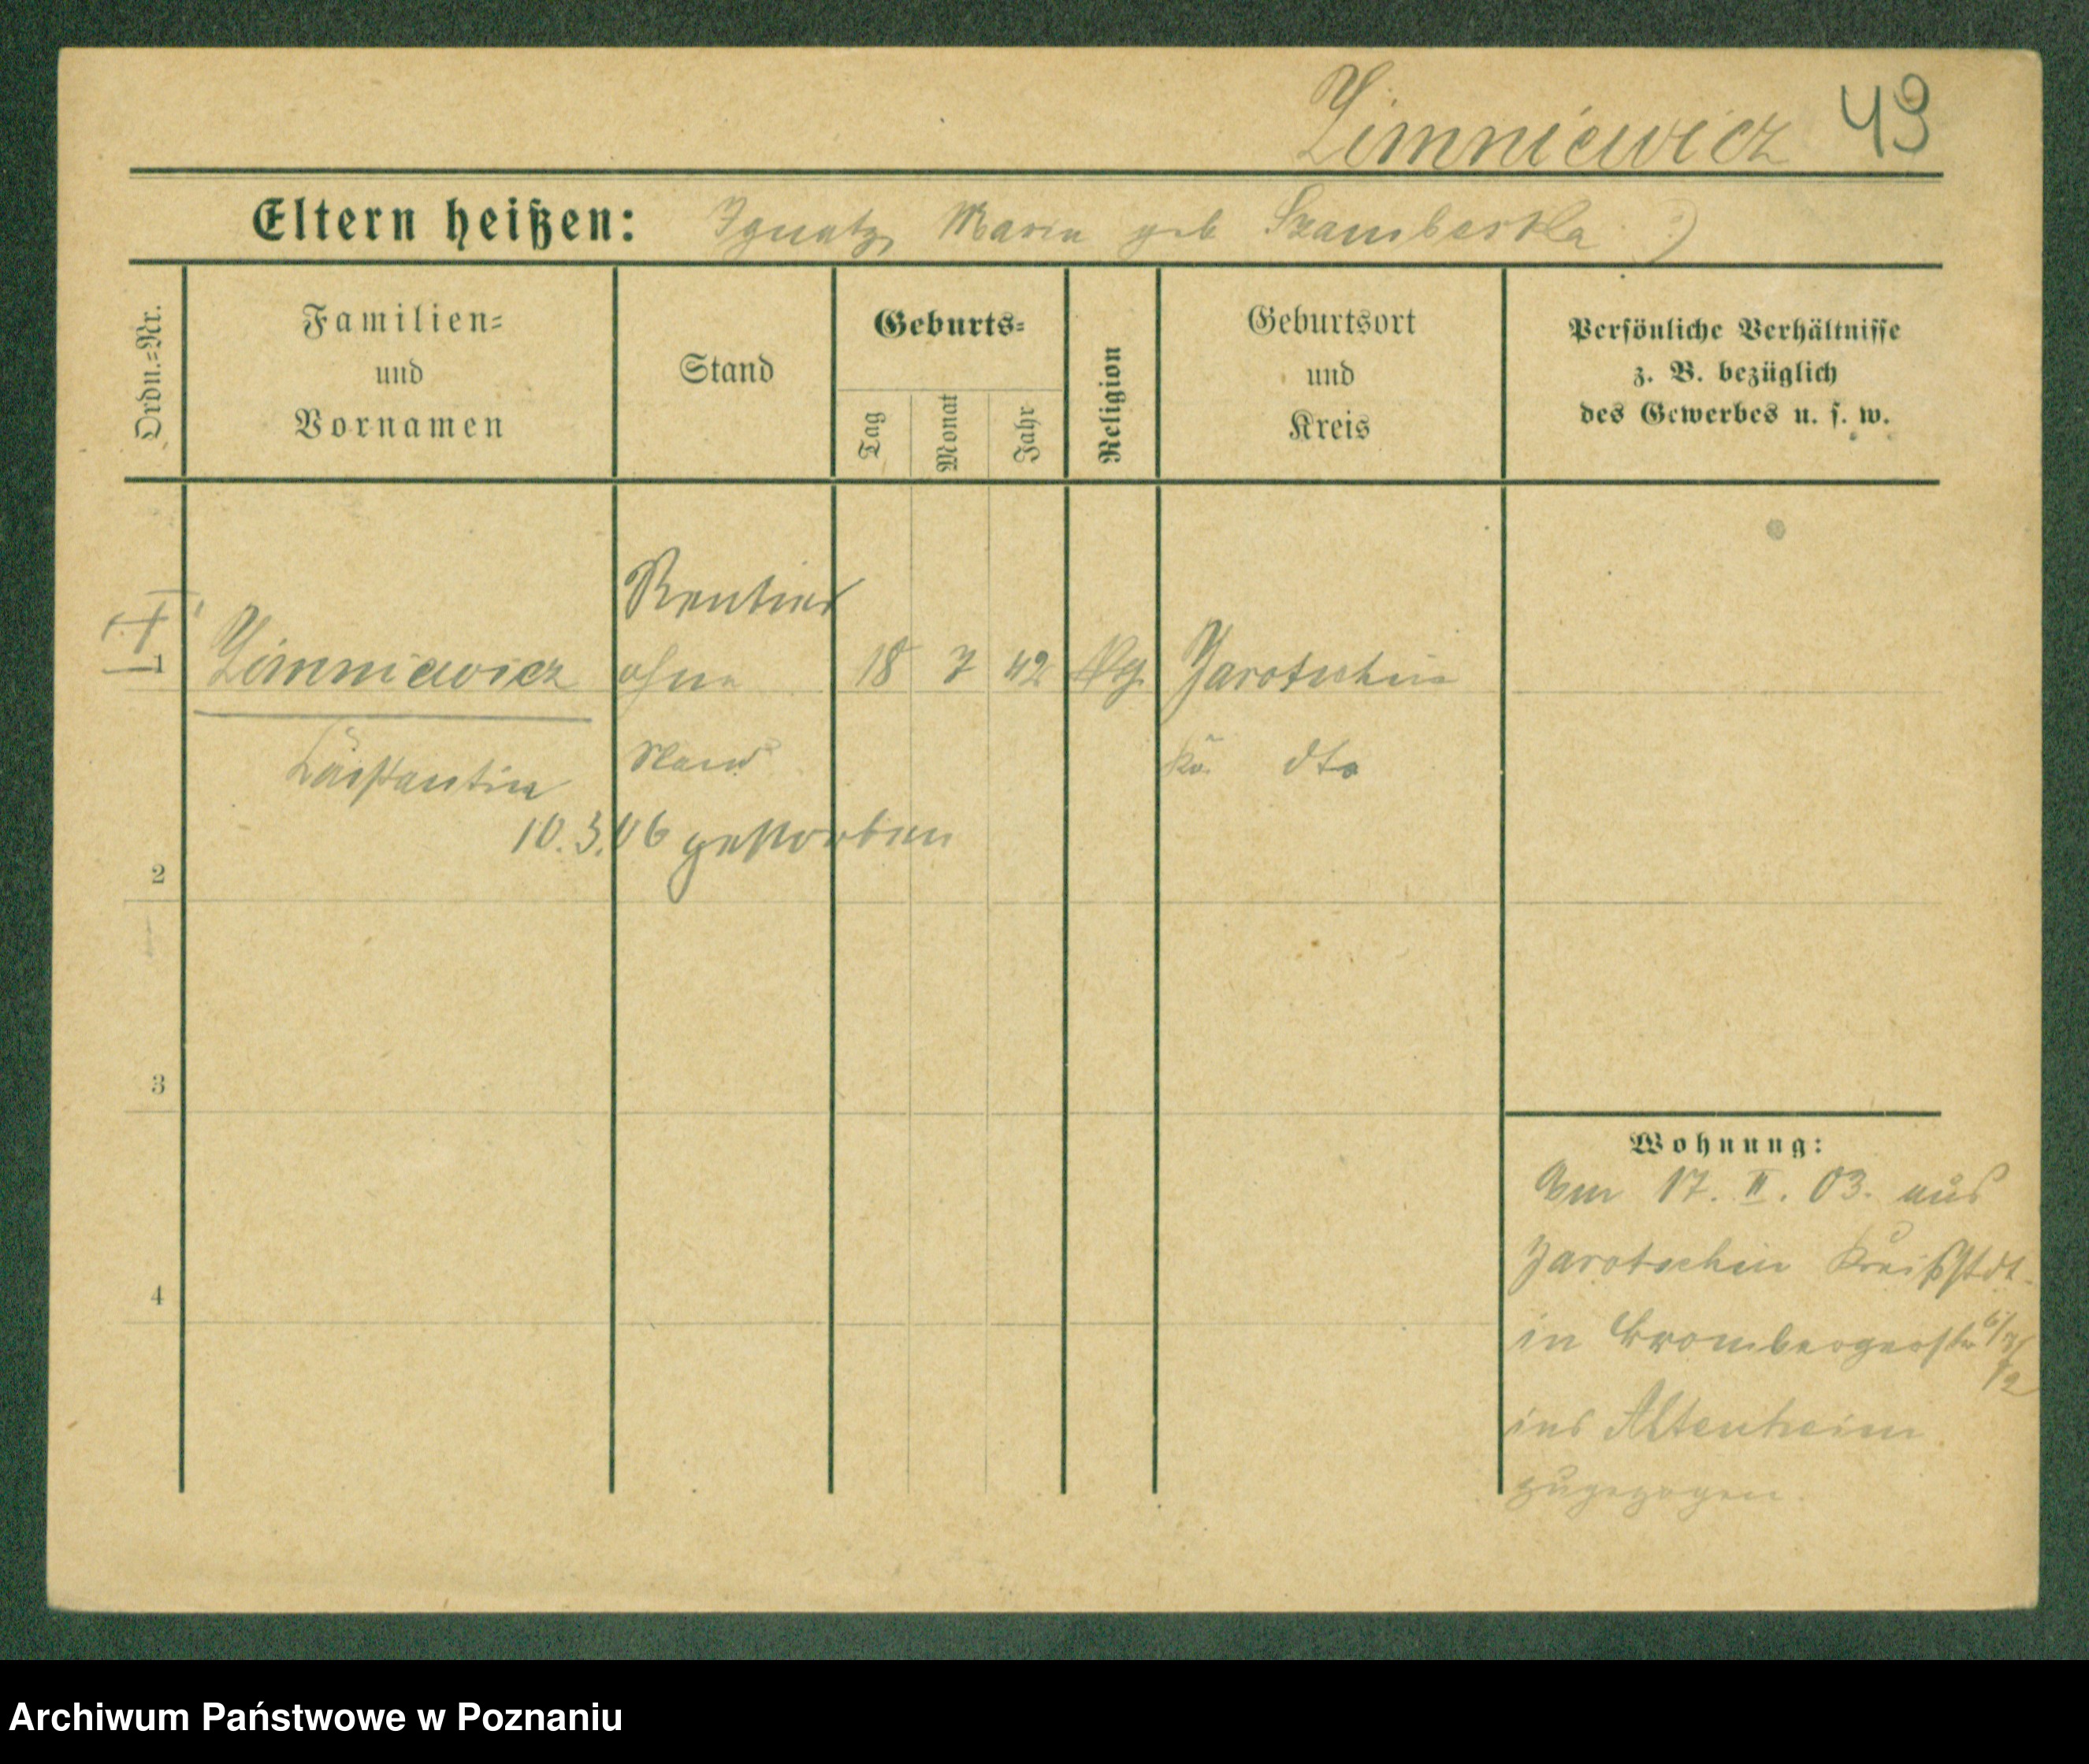 Zimniewicz 43
Eltern heißen: Ignatz, Maria geb
Ordn.=Nr.
Familien=
und
Vornamen
Stand
Geburts=
Tag
Monat
Jahr
Religion
Geburtsort
und
Kreis
Persönliche Verhältnisse
z. B. bezüglich
des Gewerbes u. s. w.
Rentier
1 Zimniewicz ohne 18 7 42 Jarotschin
Stand dto
10.3.06 gestorben
2
3
4
Wohnung:
Am 17. II. 03. aus
Jarotschin
in
ins Altenheim
zugezogen.
Archiwum Państwowe w Poznaniu